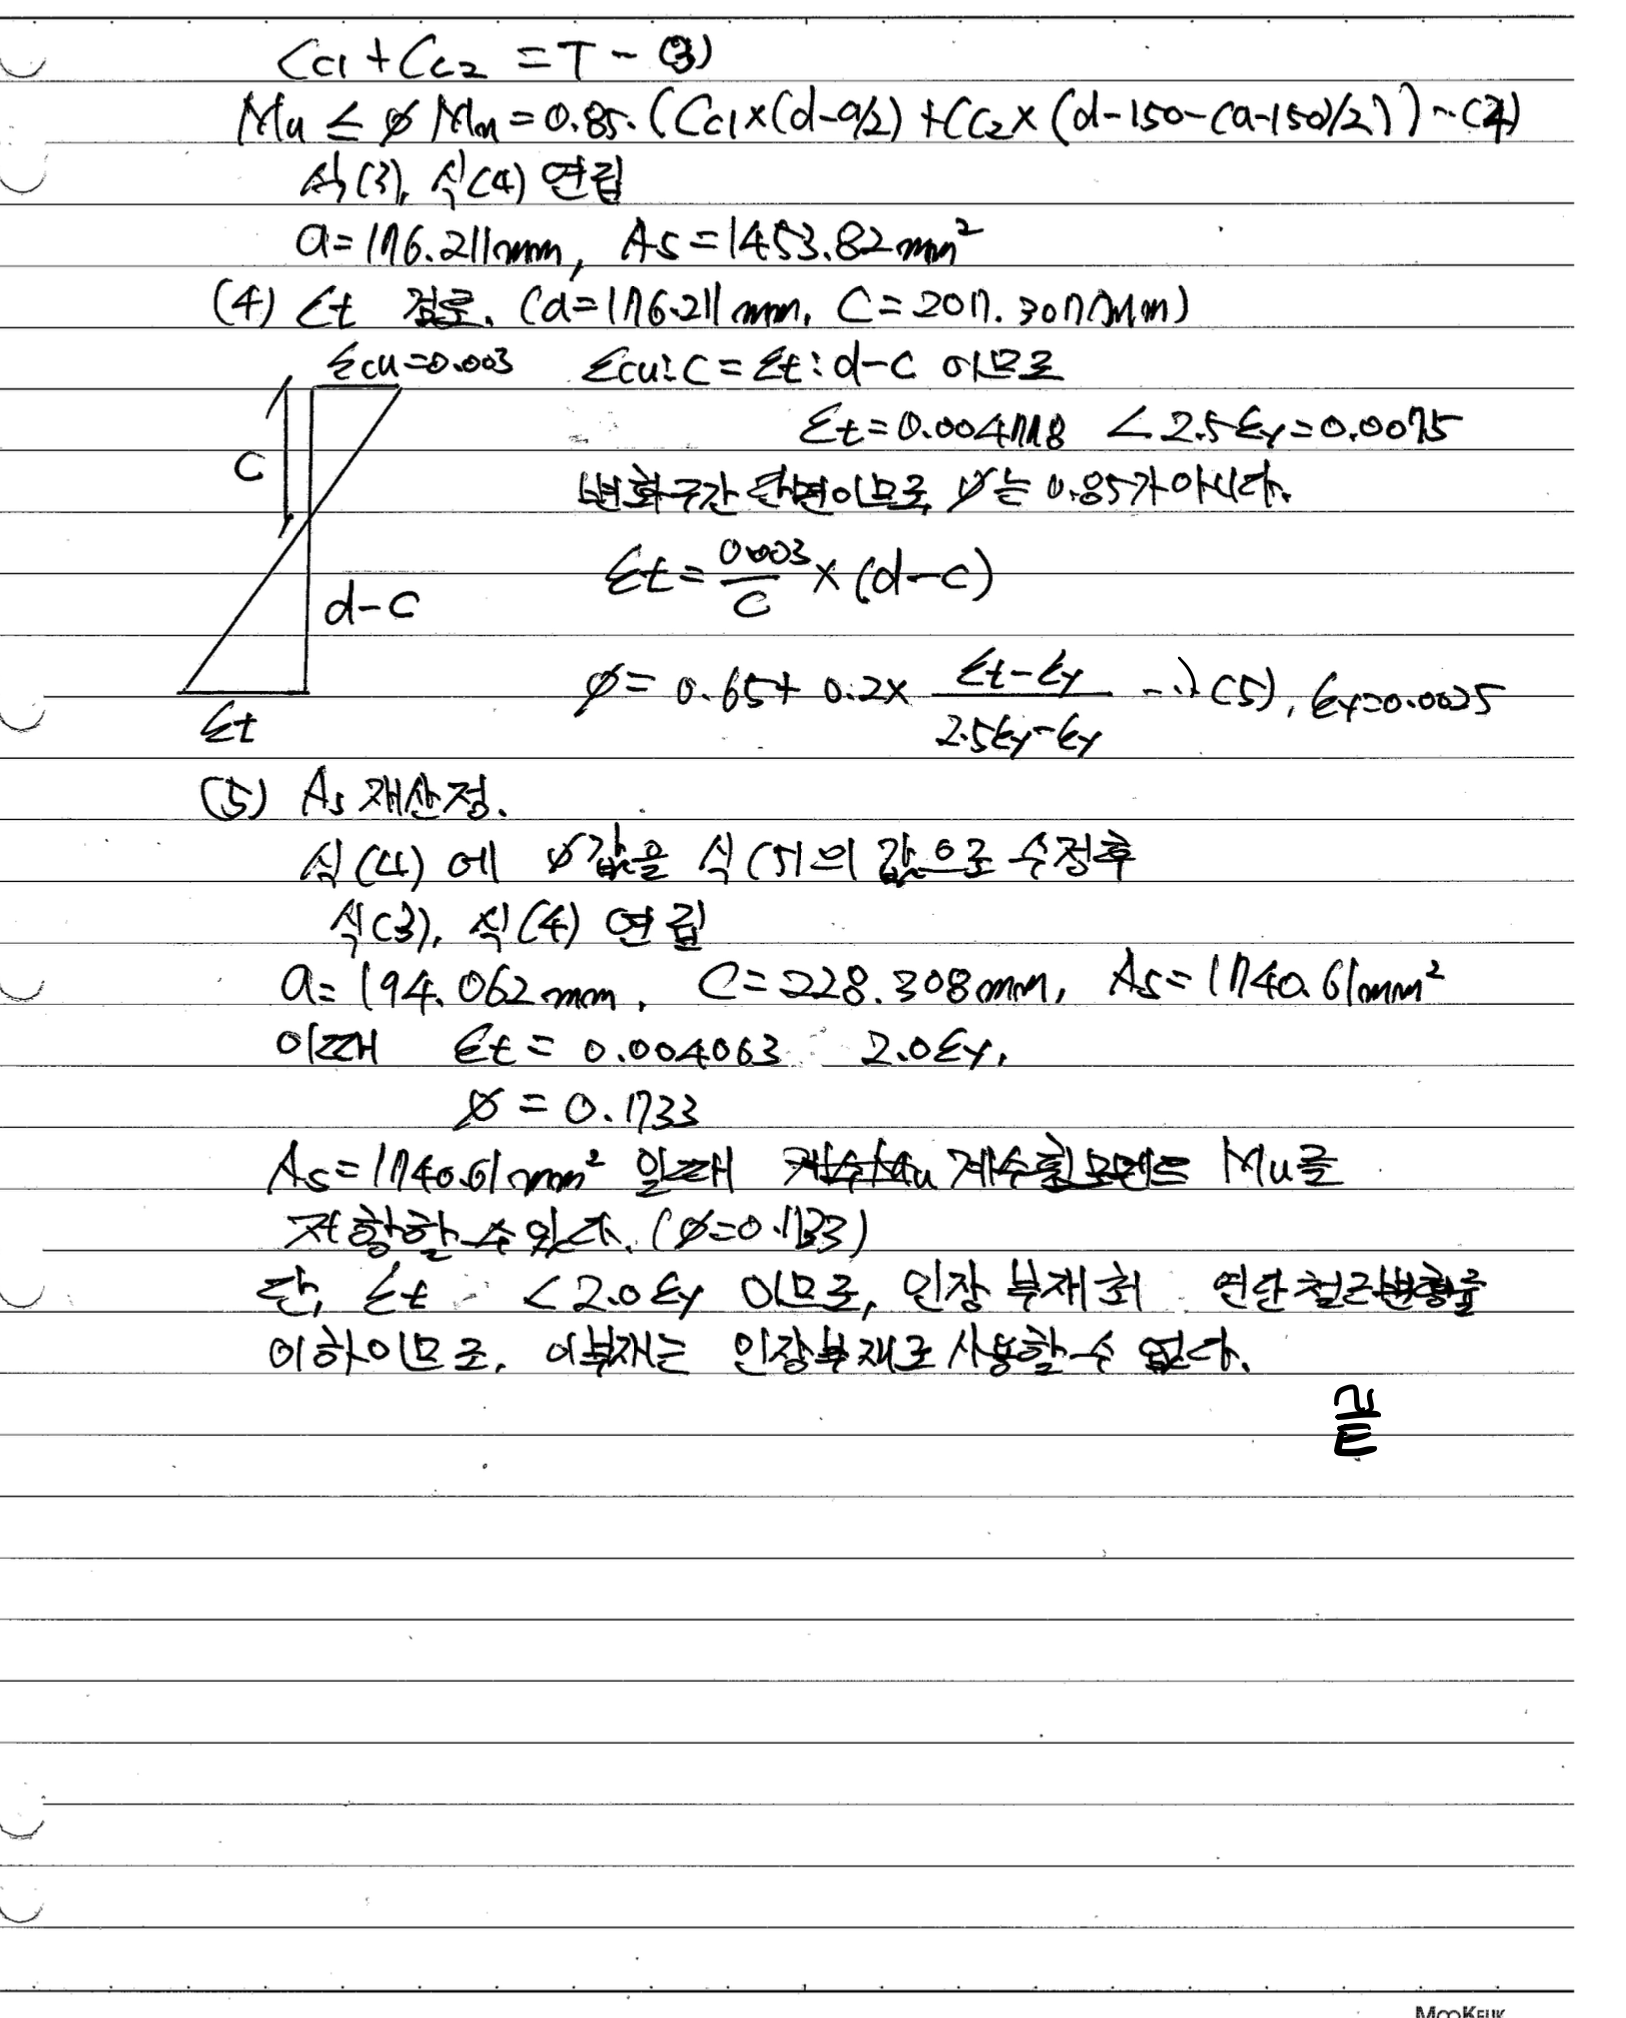 Cc1 + Cc2 = T - (3)
Mu ≤ ø Mn = 0.85·(Cc1×(d-a/2) + Cc2×(d-150-(a-150)/2)) -- (4)
식(3), 식(4) 연립
a=176.211mm, As=1453.82mm²
(4) εt 검토. (a=176.211mm, C=207.307mm)
εcu=0.003 εcu:c = εt:d-c 이므로
εt=0.004718 < 2.5εy=0.0075
C
변화구간 단면이므로, ø는 0.85가 아니다.
εt = 0.003/c × (d-c)
d-c
ø = 0.65 + 0.2× (εt-εy)/(2.5εy-εy) --> (5), εy=0.0025
εt
(5) As 재산정.
식(4)에 ø값을 식(5)의 값으로 수정후
식(3), 식(4) 연립
a=194.062mm, C=228.308mm, As=1740.61mm²
이때 εt = 0.004063 2.0εy,
ø = 0.733
As=1740.61mm² 일때 계수휨모멘트 Mu를
저항할 수 있다. (ø=0.733)
단, εt < 2.0εy 이므로, 인장부재 최 연단 철근변형률
이하이므로, 이부재는 인장부재로 사용할 수 없다.
끝
MooKeuk